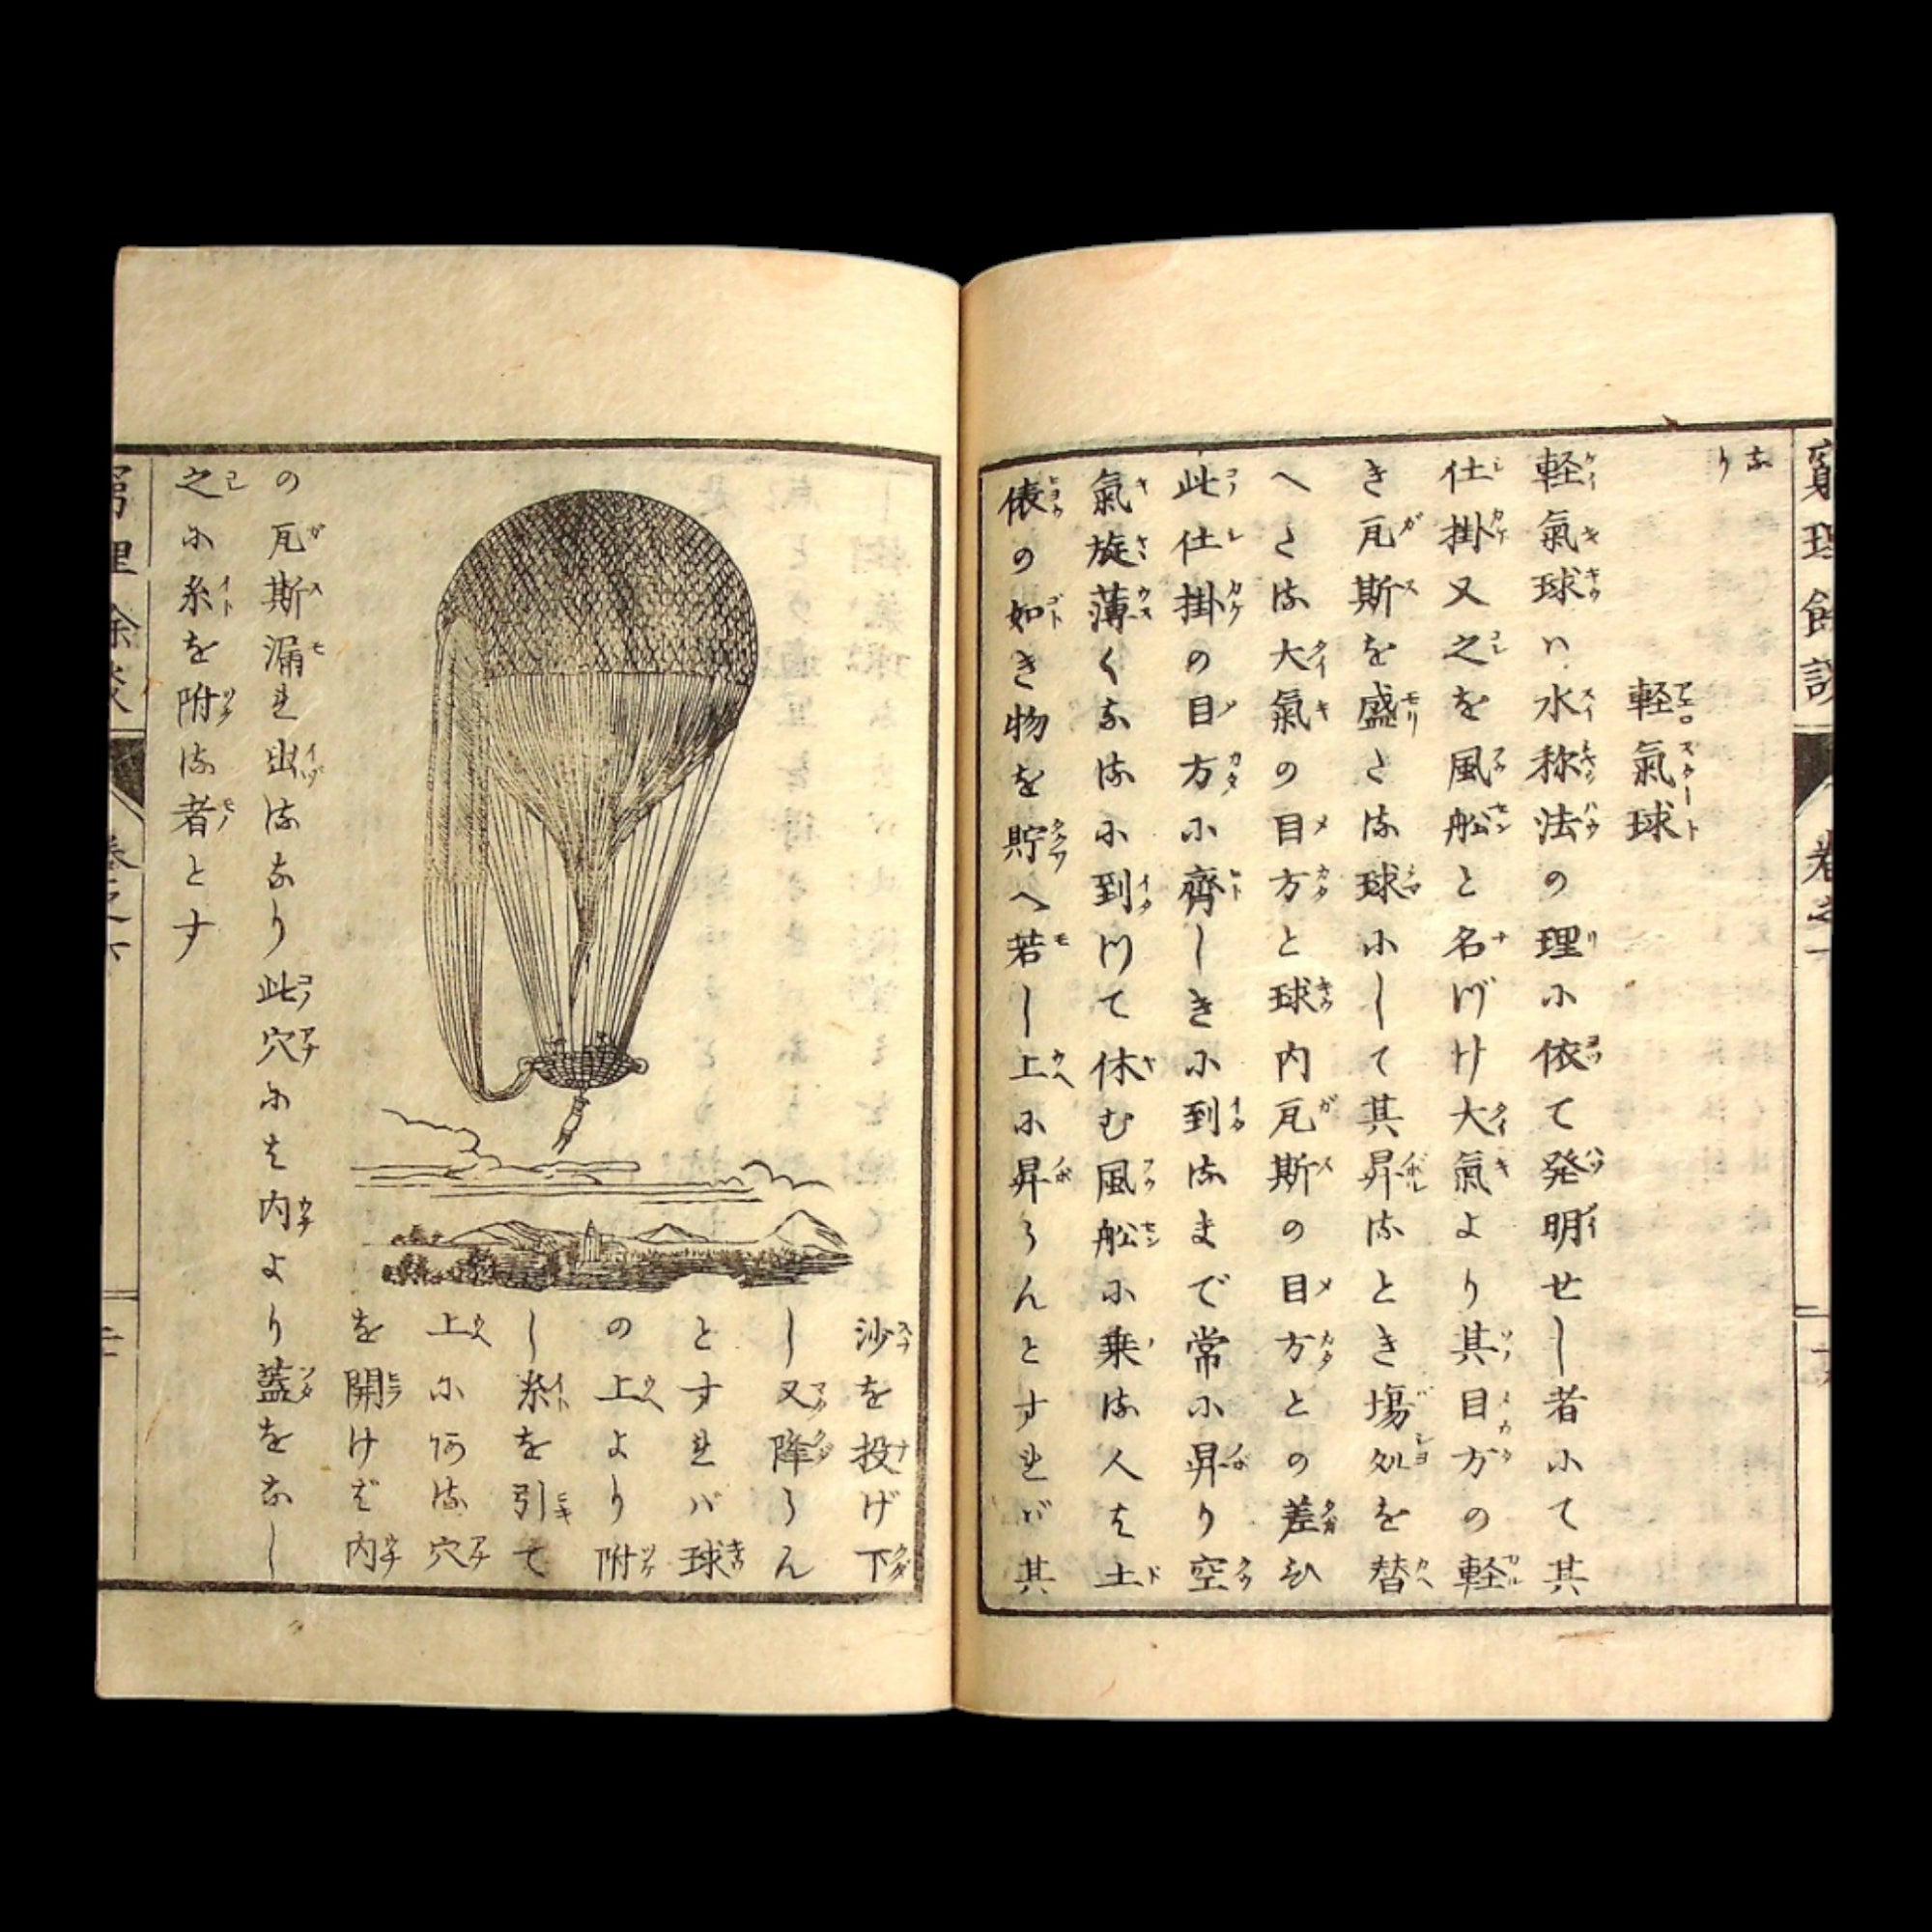 なり
軽氣球
軽氣球ハ水称法の理に依て発明せし者にて其
仕掛又之を風舩と名づけ大氣より其目方の軽
き瓦斯を盛たる球にして其昇るとき塲処を替
へたる大氣の目方と球内瓦斯の目方との差ひ
此仕掛の目方に齊しきに到るまで常に昇り空
氣旋薄くなるに到つて休む風舩に乗る人は土
俵の如き物を貯へ若し上に昇らんとすれバ其
沙を投げ下
し又降らん
とすれバ球
の上より附
し糸を引て
上にある穴
を開けば内
の瓦斯漏れ出るなり此穴には内より蓋をなし
之に糸を附る者とす